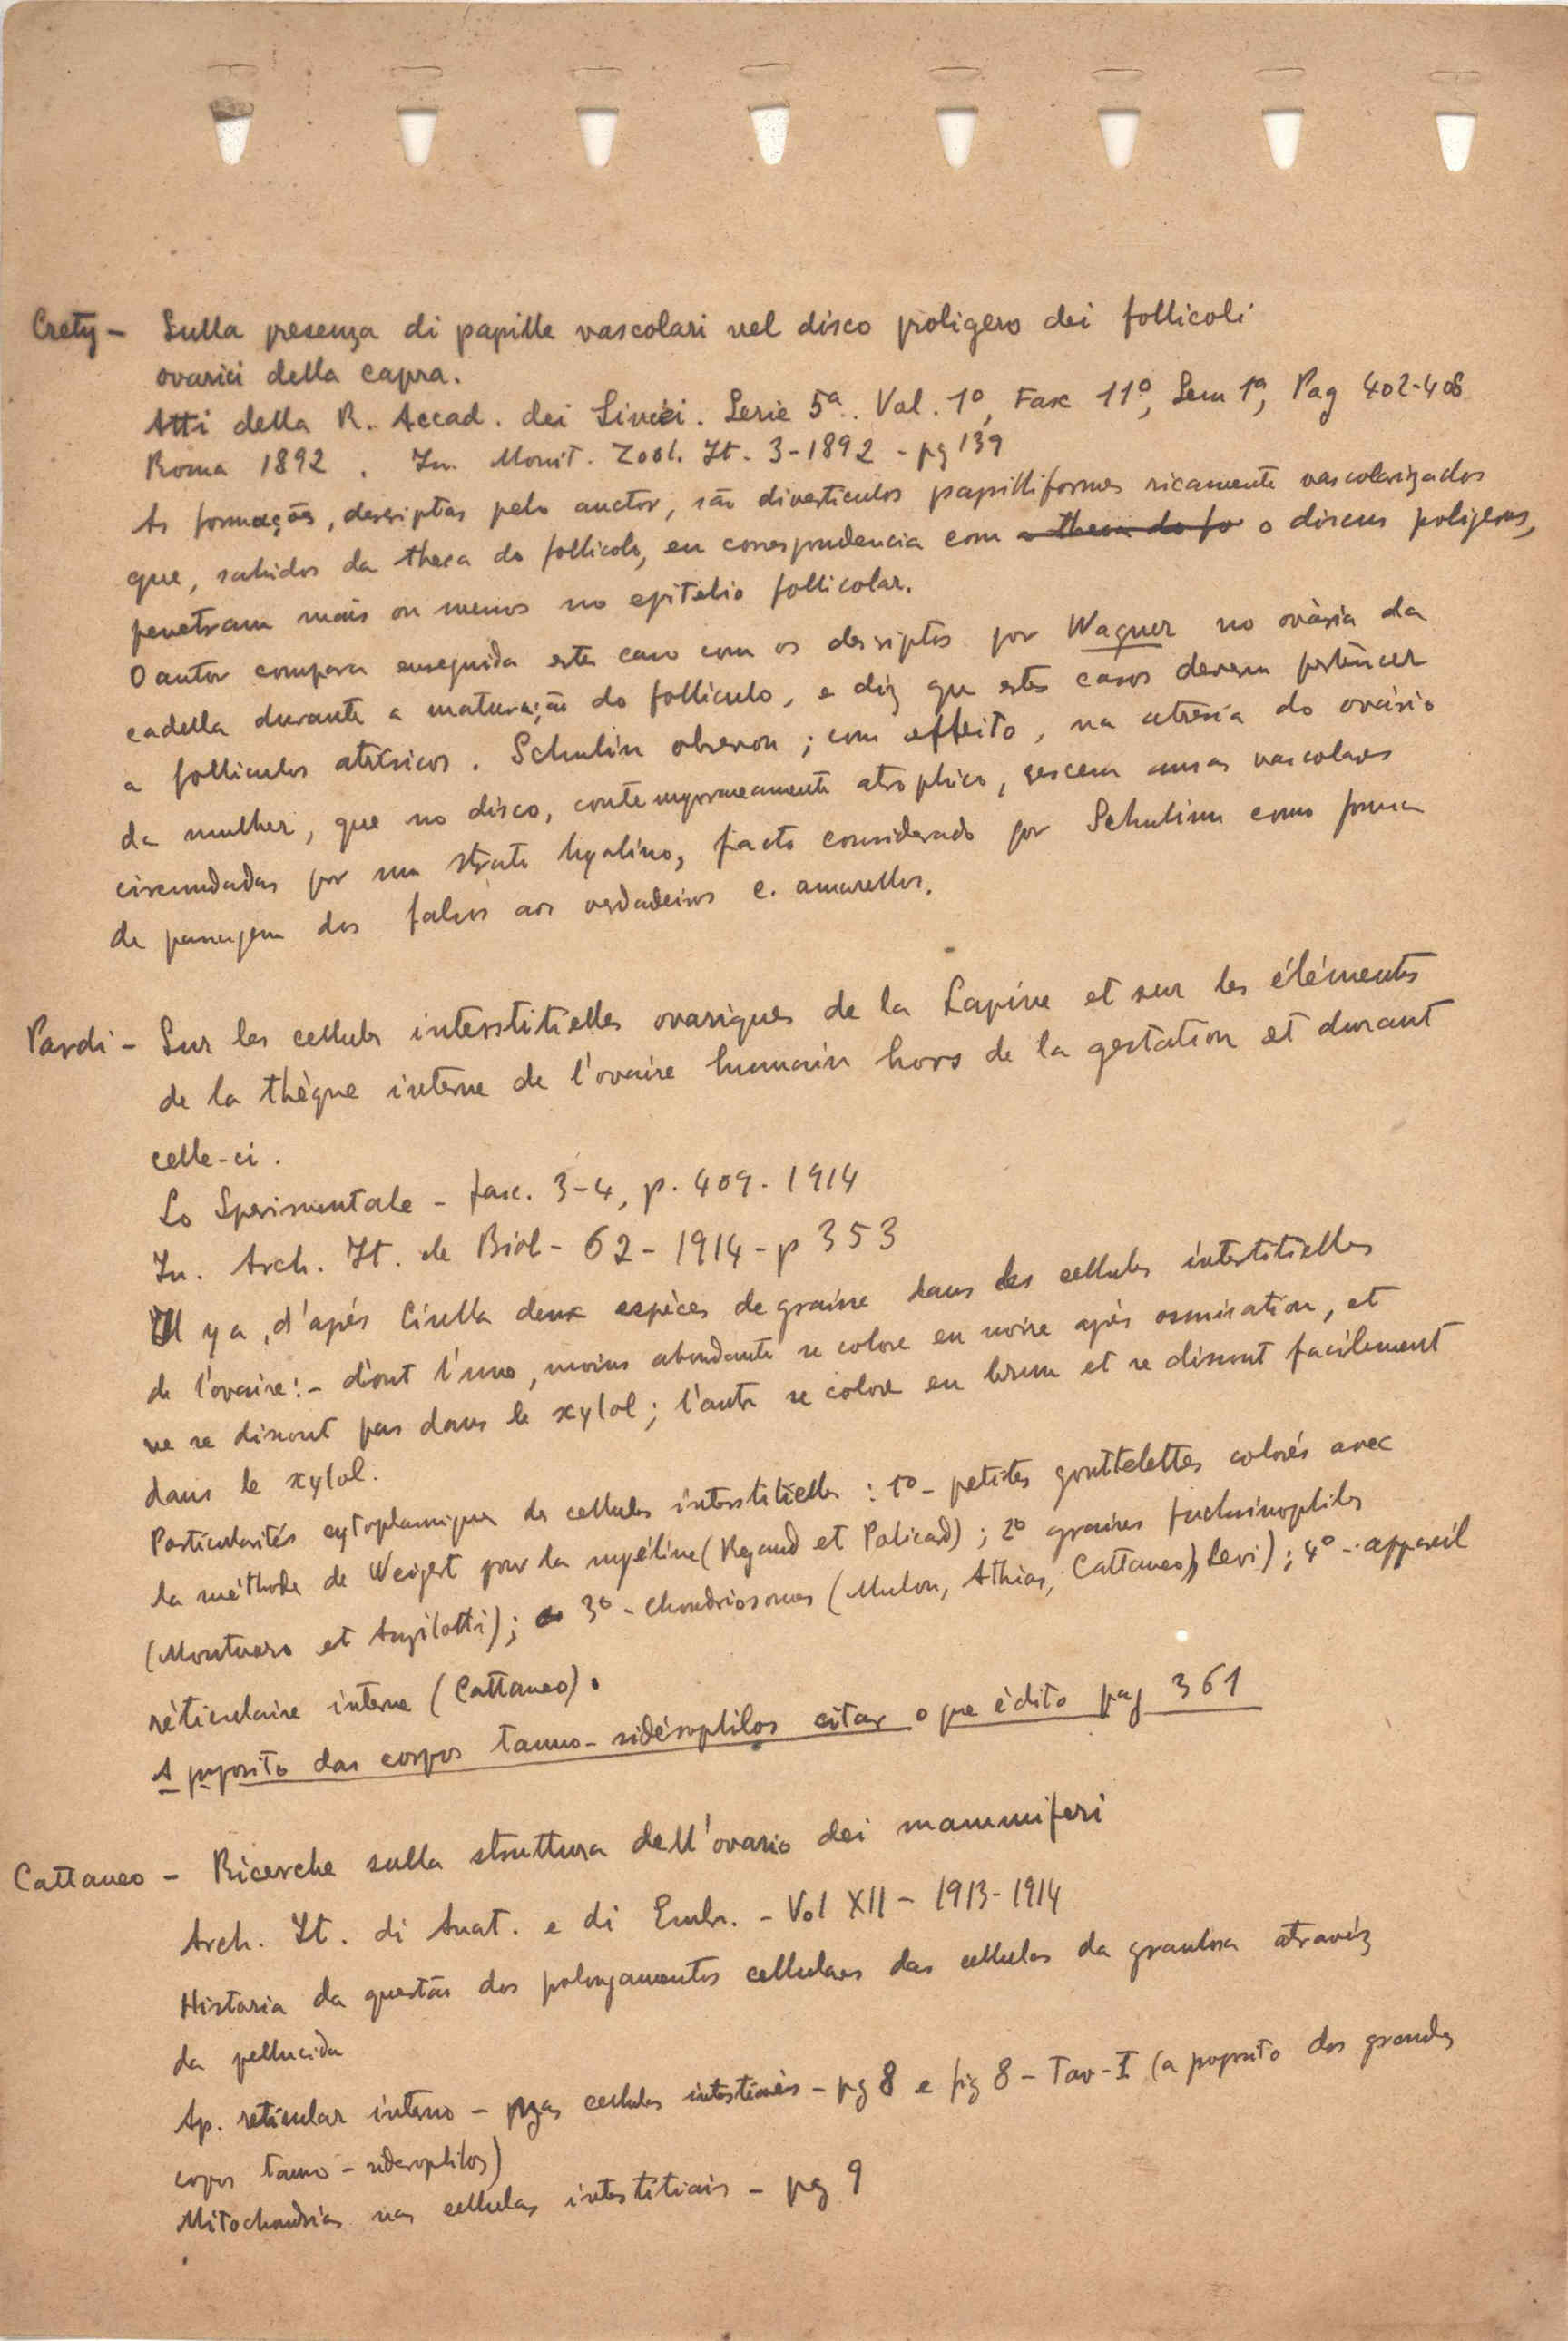 Crety – Sulla presenza di papille vascolari nel disco proligero dei follicoli
ovarici della capra.
Atti della R. Accad. dei Lincei. Serie 5ª. Vol. 1º, Fasc 11º, Sem 1ª, Pag 402-408
Roma 1892. In. Monit. Zool. It. 3-1892 - pg 139
As formações, descriptas pelo auctor, são diverticulos papilliformes ricamente vascolarizados
que, sahidos da theca do follicolo, en correspondencia com a theca do fo o discus proligerus,
penetram mais ou menos no epitelio follicolar.
O autor compara enseguida este caso com os descriptos por Wagner no ovário da
cadella durante a maturação do folliculo, e diz que estes casos devem pertencer
a folliculos atrésicos. Schulin observou; com effeito, na atresia do ovário
da mulher, que no disco, contemporaneamente atrophico, crescem ansas vascolares
circundadas por um strato hyalino, facto considerado por Schulinn como forma
de passagem dos falsos aos verdadeiros c. amarellos.
Pardi – Sur les cellules interstitielles ovariques de la Lapine et sur les éléments
de la thèque interne de l'ovaire humain hors de la gestation et durant
celle-ci.
Lo Sperimentale - fasc. 3-4, p. 409. 1914
In. Arch. It. de Biol - 62 - 1914 - p 353
Il y a, d'après Ciulla deux espèces de graisse dans les cellules intertitielles
de l'ovaire: - dont l'une, moins abondante se colore en noire après osmisation, et
ne se dissout pas dans le xylol; l'autre se colore en brun et se dissout facilement
dans le xylol.
Particularités cytoplamiques des cellules interstitielles : 1º - petites gouttelettes colorés avec
la méthode de Weigert pour la myéline (Regaud et Policard); 2º graines fuchsinophiles
(Montuoro et Angilotti); 3º - chondriosomes (Mulon, Athias, Cattaneo, Levi); 4º - appareil
réticulaire interne (Cattaneo).
A proposito das corpos tanno-sidérophilos citar o que é dito pag 361
Cattaneo – Ricerche sulla struttura dell'ovario dei mammiferi
Arch. It. di Anat. e di Embr. - Vol XII - 1913-1914
Historia da questão dos prolongamentos cellulares das cellulas da granlosa atravéz
da pellucida
Ap. reticular interno - cellulas intersticiais - pg 8 e fig 8 - Tav - I (a proposito dos grandes
copos tanno - siderophilos)
Mitochondrias nas cellulas interstitiais - pg 9